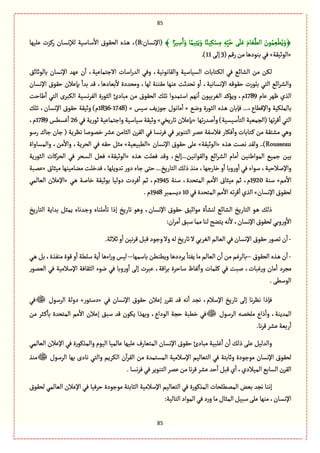 85
﴿ وَيُطْعِمُونَ الطَّعَامَ عَلَى حُبِّهِ مِسْكِينًا وَيَتِيمًا وَأَسِيرًا ﴾ (الإنسان:8)، هذه الحقوق الأساسية للإنسان ركزت عليها
«الوثيقة» في بنودها من رقم (3 إلى 11).
لكن من الشائع في الكتابات السياسية والقانونية، وفي الدراسات الاجتماعية، أن عهد الإنسان بالوثائق
والشرائع التي بلورت حقوقه الإنسانية، أو تحدثت عنها مقننة لها، ومحددة لأبعادها، قد بدأ بإعلان حقوق الإنسان
الذي ظهر عام 1789م، ويؤكد الغربيون أنهم استمدوا تلك الحقوق من مبادئ الثورة الفرنسية الكبرى التي أطاحت
بالملكية والإقطاع ..... فإبان هذه الثورة وضع «أمانول جوزيف سيس» (1748-1836م) وثيقة حقوق الإنسان، تلك
التي أقرتها (الجمعية التأسيسية) وأصدرتها «كإعلان تاريخي» ووثيقة سياسية واجتماعية ثورية في 26 أغسطس 1789م،
وهي مشتقة من كتابات وأفكار فلاسفة عصر التنوير في فرنسا في القرن الثامن عشر خصوصا نظرية ( جان جاك رسو
Rousseau).. ولقد نصت هذه «الوثيقة» على حقوق الإنسان «الطبيعية» مثل حقه في الحرية، والأمن، والمساواة
بين جميع المواطنين أمام الشرائع والقوانين...إلخ، وقد فعلت هذه «الوثيقة» فعل السحر في الحركات الثورية
والإصلاحية، سواء في أوروبا أو خارجها، منذ ذلك التاريخ... حتى جاء دور تدويلها، فدخلت مضامينها ميثاق «عصبة
الأمم» سنة 1920م، ثم ميثاق الأمم المتحدة، سنة 1945م، ثم أفردت دوليا بوثيقة خاصة هي «الإعلان العالمي
لحقوق الإنسان» الذي أقرته الأمم المتحدة في 10 ديسمبر 1948م .
ذلك هو التاريخ الشائع لنشأة مواثيق حقوق الإنسان، وهو تاريخ إذا تأملناه وجدناه يمثل بداية التاريخ
الأوروبي لحقوق الإنسان، لأنه يتضح لنا مما سبق أمران:
- أن تصور حقوق الإنسان في العالم الغربي لا تاريخ له ولا وجود قبل قرنين أو ثلاثة.
- أن هذه الحقوق –بالرغم من أن العالم ما يفتأ يرددها ويطنطن باسمها– ليس وراءها أية سلطة أو قوة منفذة، بل هي
مجرد أمان ورغبات، سبت في كلمات وألفاظ ساحرة براقة، عبرت إلى أوروبا في ضوء الثقافة الإسلامية في العصور
الوسطى .
فإذا نظرنا إلى تاريخ الإسلام، نجد أنه قد تقرر إعلان حقوق الإنسان في «دستور» دولة الرسول ﷺ في
المدينة، وأذاع ملخصه الرسول ﷺ في خطبة حجة الوداع، وبهذا يكون قد سبق إعلان الأمم المتحدة بأكثر من
أربعة عشر قرنا.
والدليل على ذلك أن أغلبية مبادئ حقوق الإنسان المتعارف عليها عالميا اليوم والمذكورة في الإعلان العالمي
لحقوق الإنسان موجودة وثابتة في التعاليم الإسلامية المستمدة من القرآن الكريم والتي نادى بها الرسول ﷺ منذ
القرن السابع الميلادي، أي قبل أحد عشر قرنا من عصر التنوير في فرنسا .
إننا نجد بعض المصطلحات المذكورة في التعاليم الإسلامية الثابتة موجودة حرفيا في الإعلان العالمي لحقوق
الإنسان، منها على سبيل المثال ما ورد في المواد التالية:
85